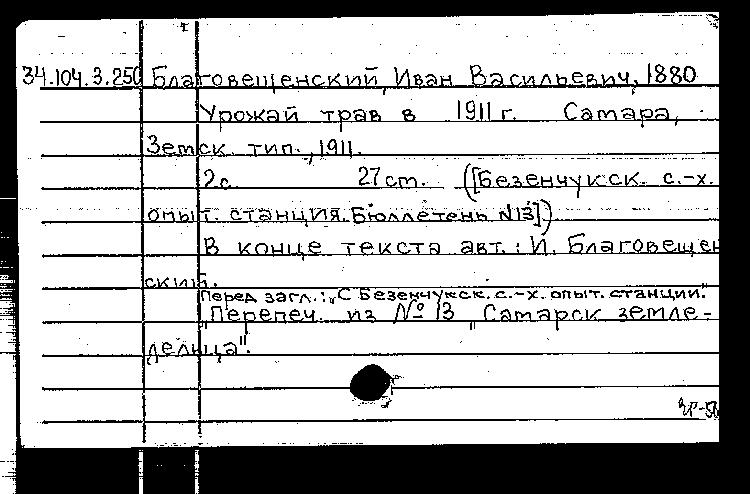 34.104.3.250 Благовещенский, Иван Васильевич, 1880
Урожай трав в 1911 г. Самара,
Земск. тип., 1911.
2 с. 27 ст. ([Безенчукск. с.-х.
опыт. станция. Бюллетень №13])
В конце текста авт.: И. Благовещен
ский.
Перед загл.: „С Безенчукск. с.-х. опыт. станции."
"Перепеч. из № 13 „Самарск земле-
дельца".